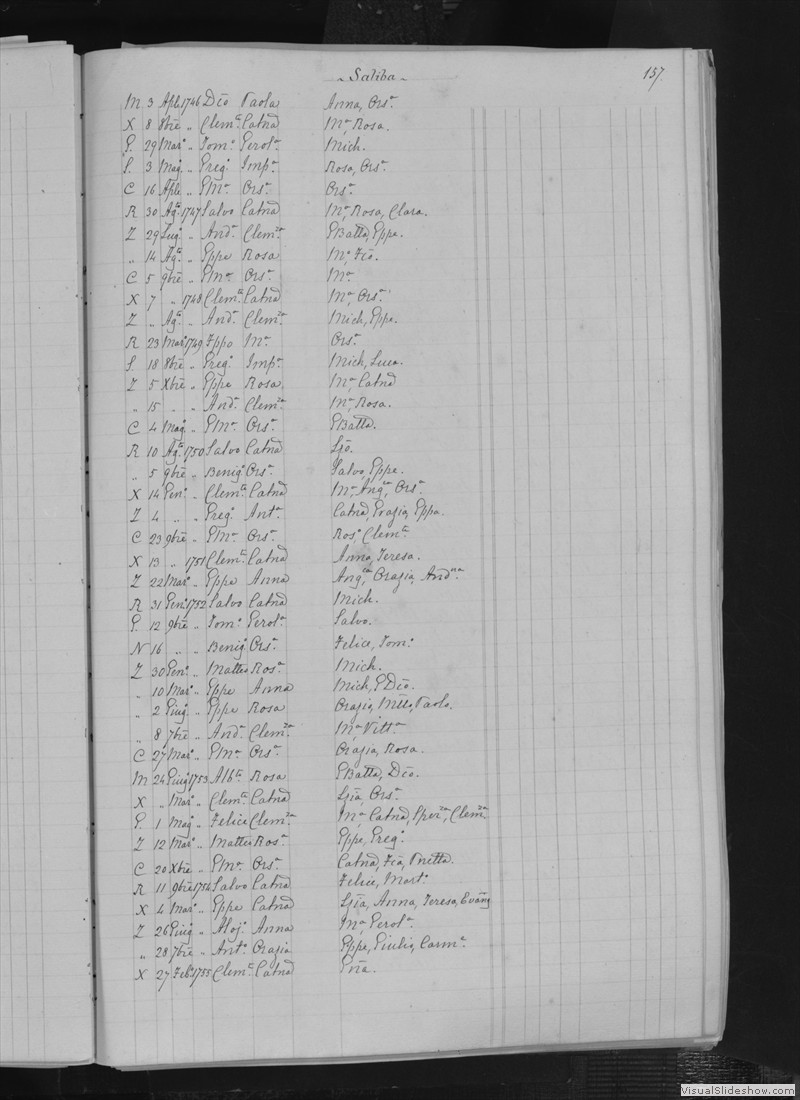 Saliba 157.
M 3 Aple 1746 Dco Paola Anna, Ors.a
X 8 8bre „ Clem.te Catnd Ma, Rosa.
G. 29 Mar.o „ Tom.o Gerol.a Mich.
S. 3 Mag. „ Greg.o Imp.a Rosa, Ors.a
C 16 Aple „ GM.a Ors.a Ors.a
R 30 Ag.to 1747 Salvo Catnd Ma, Rosa, Clara.
Z 29 Lug.o „ And.a Clem.za GBatta, Gppe.
„ 14 Ag.to „ Gppe Rosa
C 5 9bre „ GM.a Ors.a Ma
X 7 „ 1748 Clem.te Catnd Ma, Ors.a
Z „ Ag.to „ And.a Clem.za Mich, Gppe.
R 23 Mar.o 1749 Fppo M.a Ors.a
S. 18 8bre „ Greg.o Imp.a Mich, Luca.
Z 5 Xbre „ Gppe Rosa Ma, Catnd
„ 15 „ „ And.a Clem.za Ma, Rosa.
C 4 Mag. „ GM.a Ors.a GBatta.
R 10 Ag.to 1750 Salvo Catnd
„ 5 9bre „ Benig.o Ors.a Salvo, Gppe.
X 14 Gen.o „ Clem.te Catnd Ma, Ang.ca, Ors.a
Z 4 „ „ Greg.o Ant.a Catnd, Grazia, Gppa.
C 23 9bre „ GM.a Ors.a Ros.o, Clem.te
X 13 „ 1751 Clem.te Catnd Anna, Teresa.
Z 22 Mar.o „ Gppe Anna Ang.ca, Orazia, And.na
R 31 Gen.o 1752 Salvo Catnd Mich.
G. 12 9bre „ Tom.o Gerol.a Salvo.
N 16 „ „ Benig.o Ors.a Felice, Tom.o
Z 30 Gen.o „ Matteo Ros.a Mich.
„ 10 Mar.o „ Gppe Anna Mich, GDco.
„ 2 Giug. „ Gppe Rosa Orazio, Paolo.
„ 8 7bre „ And.a Clem.za Ma, Vitt.a
C 27 Mar.o „ GM.a Ors.a Orazia, Rosa.
M 24 Giug. 1753 Alb.to Rosa GBatta, Dco.
X „ Mar.o „ Clem.te Catnd Ors.a
G. 1 Mag. „ Felice Clem.za Ma, Catnd, Sper.za, Clem.za
Z 12 Mar.o „ Matteo Ros.a Gppe, Greg.o
C 20 Xbre „ GM.a Ors.a Catnd,
R 11 9bre 1754 Salvo Catnd Felice, Mart.o
X 4 Mar.o „ Gppe Catnd Anna, Teresa, Evang
Z 26 Giug. „ Aloj. Anna Ma, Gerol.a
„ 28 7bre „ Ant.o Orazia Gppe, Giulio, Carm.a
X 27 Feb.o 1755 Clem.te Catnd
VisualSlideshow.com